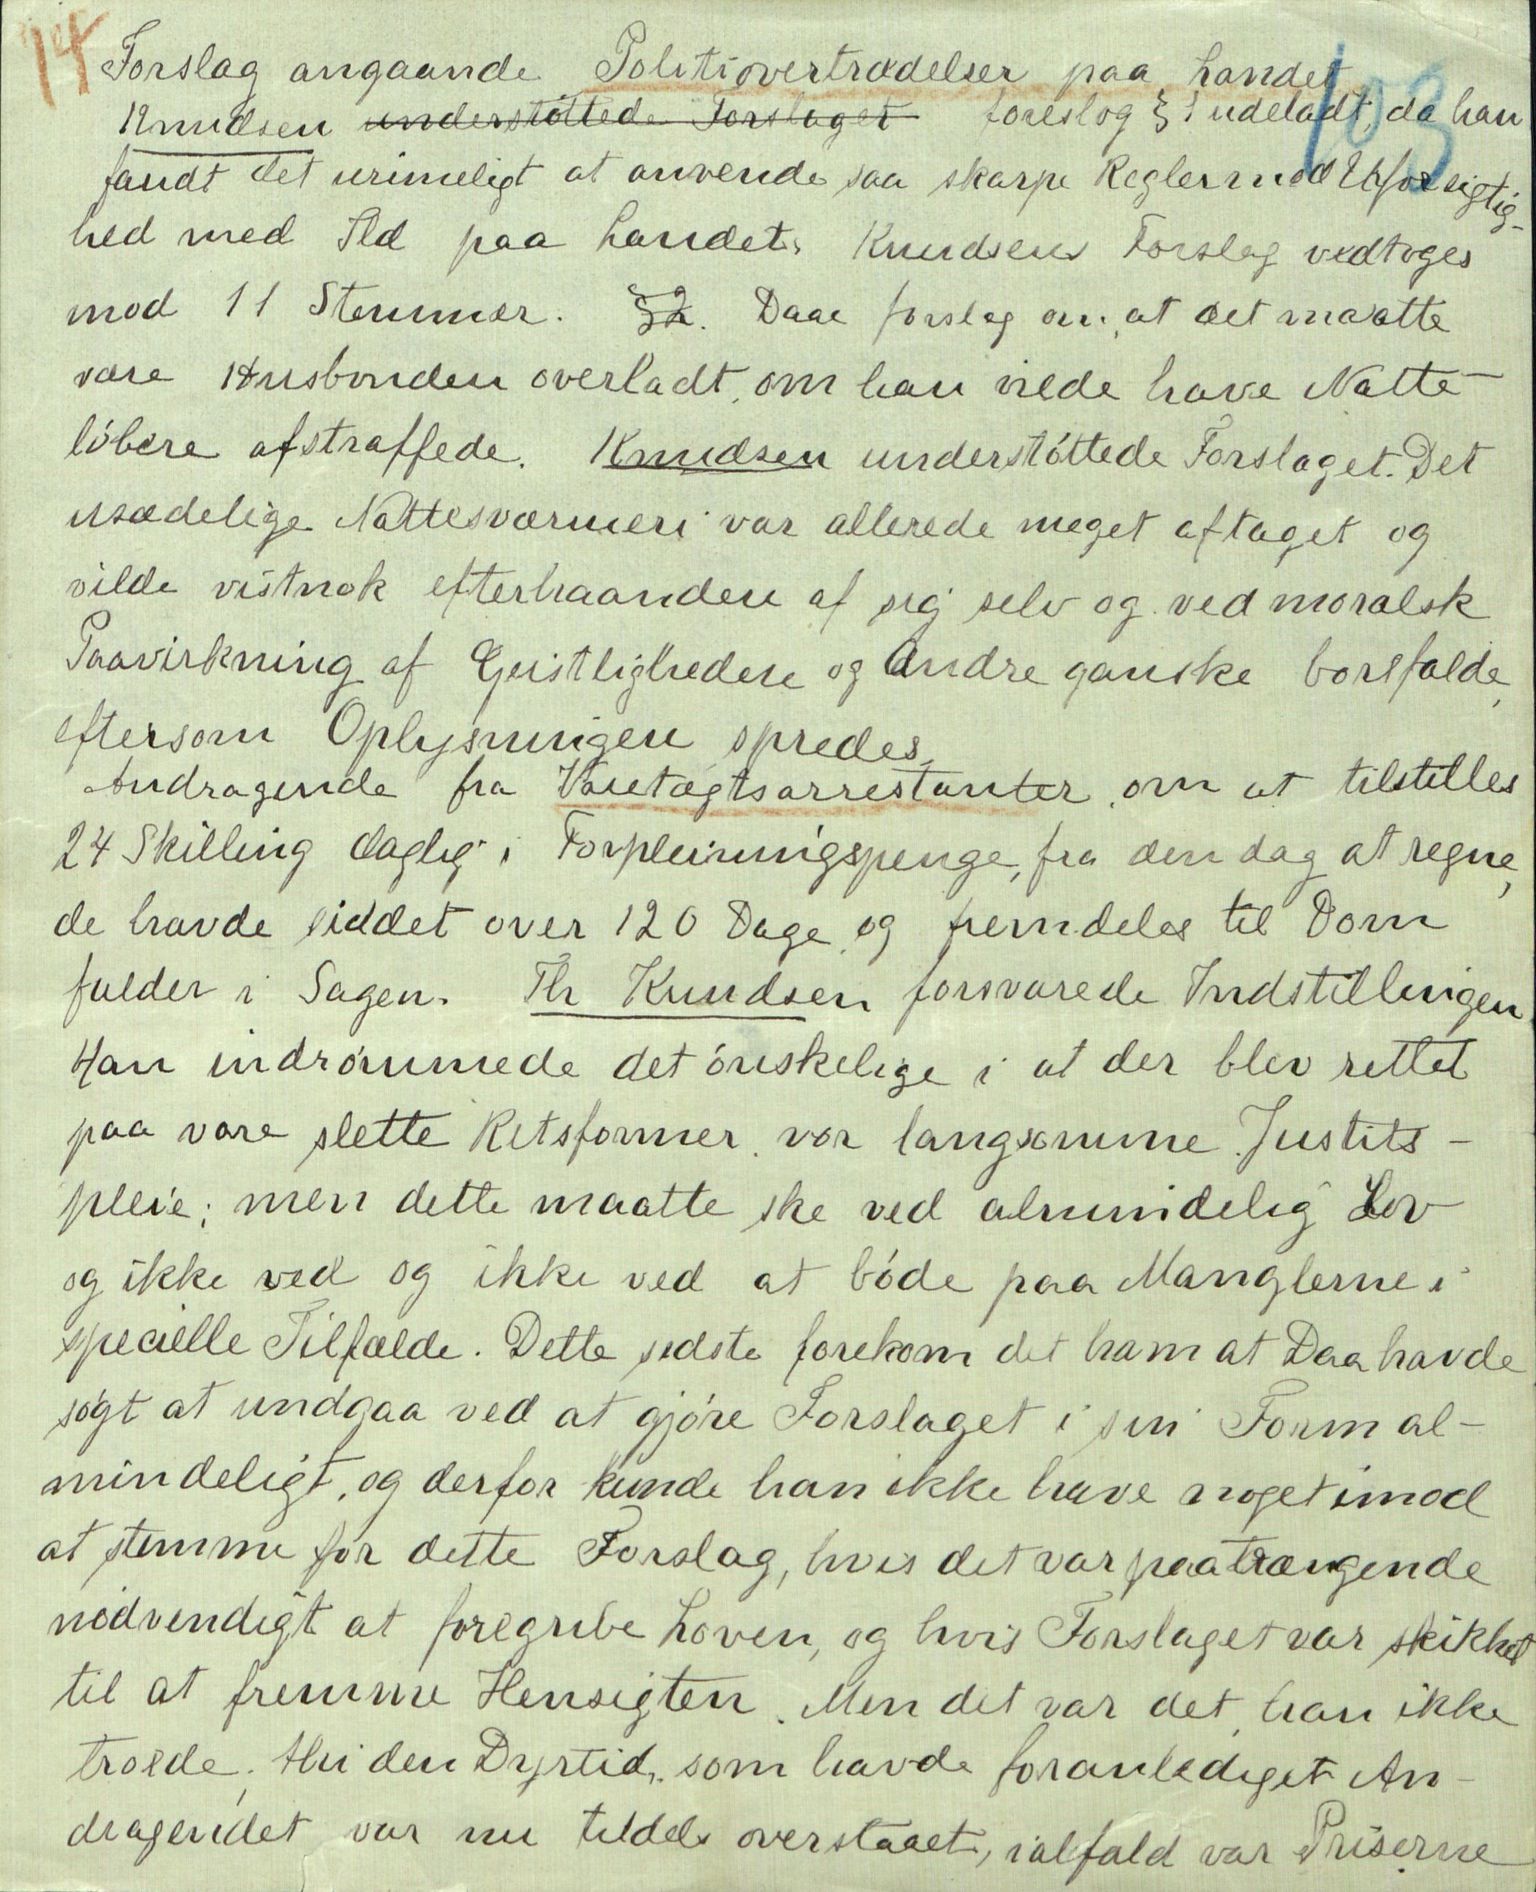 14
103
Forslag angaaende Politiovertrædelser paa Landet
Knudsen understöttede Forslaget foreslog § 1 udeladt, da han
fandt det urimeligt at anvende saa skarpe Regler mod Uforsigtig-
hed med Ild paa Landet. Knudsens Forslag vedtoges
mod 11 Stemmer. § 2. Daae forslag om, at det maatte
være Husbonden overladt, om han vilde have Natte-
löbere afstraffede. Knudsen understöttede Forslaget. Det
usædelige Nattesværmeri var allerede meget aftaget og
vilde vistnok efterhaanden af sig selv og ved moralsk
Paavirkning af Geistligheden og Andre ganske bortfalde,
eftersom Oplysningen spredes.
Andragende fra Varetægtsarrestanter om at tilstilles
24 Skilling daglig i Forpleiningspenge, fra den dag at regne,
de havde siddet over 120 Dage og fremdeles til Dom
falder i Sagen. Th Knudsen forsvarede Indstillingen.
Han indrömmede det önskelige i at der blev rettet
paa vore slette Retsformer, vor langsomme Justits-
pleie; men dette maatte ske ved almindelig Lov
og ikke ved og ikke ved at böde paa Manglerne i
specielle Tilfælde. Dette sidste forekom det ham at Daa havde
sögt at undgaa ved at gjöre Forslaget i sin Form al-
mindeligt, og derfor kunde han ikke have noget imod
at stemme for dette Forslag, hvis det var paatrængende
nödvendigt at foregribe Loven, og hvis Forslaget var skikket
til at fremme Hensigten. Men det var det, han ikke
troede, thi den Dyrtid, som havde foranlediget An-
dragendet var nu tildels overstaaet, ialfald var Priserne